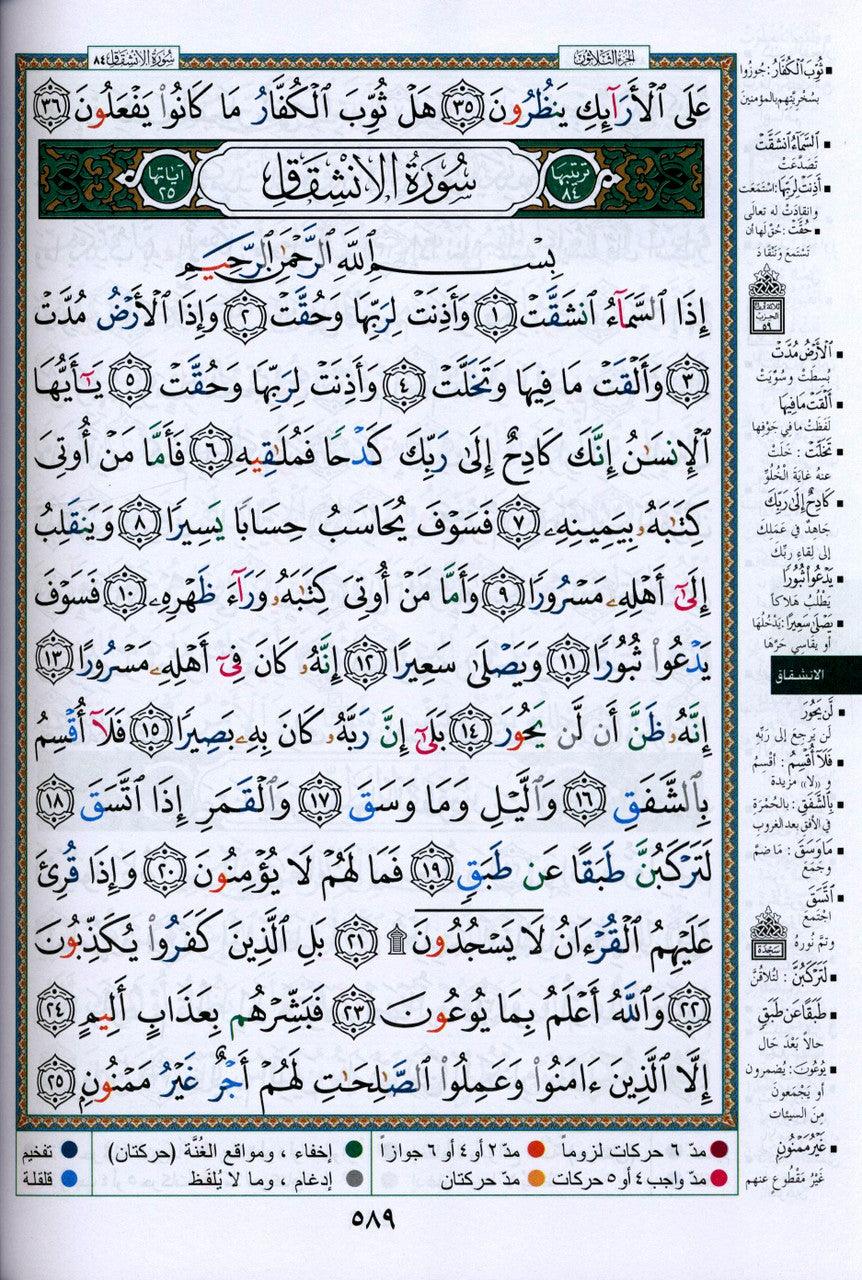 سُورَةُ الانشِقَاقِ ٨٤
الجُزءُ الثَّلاثُونَ
عَلَى ٱلْأَرَآئِكِ يَنظُرُونَ ٣٥ هَلْ ثُوِّبَ ٱلْكُفَّارُ مَا كَانُوا۟ يَفْعَلُونَ ٣٦
ترتيبها ٨٤
سُورَةُ الانْشِقَاقِ
آياتها ٢٥
بِسْمِ ٱللَّهِ ٱلرَّحْمَٰنِ ٱلرَّحِيمِ
إِذَا ٱلسَّمَآءُ ٱنشَقَّتْ ١ وَأَذِنَتْ لِرَبِّهَا وَحُقَّتْ ٢ وَإِذَا ٱلْأَرْضُ مُدَّتْ
٣ وَأَلْقَتْ مَا فِيهَا وَتَخَلَّتْ ٤ وَأَذِنَتْ لِرَبِّهَا وَحُقَّتْ ٥ يَٰٓأَيُّهَا
ٱلْإِنسَٰنُ إِنَّكَ كَادِحٌ إِلَىٰ رَبِّكَ كَدْحًا فَمُلَٰقِيهِ ٦ فَأَمَّا مَنْ أُوتِىَ
كِتَٰبَهُۥ بِيَمِينِهِۦ ٧ فَسَوْفَ يُحَاسَبُ حِسَابًا يَسِيرًا ٨ وَيَنقَلِبُ
إِلَىٰٓ أَهْلِهِۦ مَسْرُورًا ٩ وَأَمَّا مَنْ أُوتِىَ كِتَٰبَهُۥ وَرَآءَ ظَهْرِهِۦ ١٠ فَسَوْفَ
يَدْعُوا۟ ثُبُورًا ١١ وَيَصْلَىٰ سَعِيرًا ١٢ إِنَّهُۥ كَانَ فِىٓ أَهْلِهِۦ مَسْرُورًا ١٣
إِنَّهُۥ ظَنَّ أَن لَّن يَحُورَ ١٤ بَلَىٰٓ إِنَّ رَبَّهُۥ كَانَ بِهِۦ بَصِيرًا ١٥ فَلَآ أُقْسِمُ
بِٱلشَّفَقِ ١٦ وَٱلَّيْلِ وَمَا وَسَقَ ١٧ وَٱلْقَمَرِ إِذَا ٱتَّسَقَ ١٨
لَتَرْكَبُنَّ طَبَقًا عَن طَبَقٍ ١٩ فَمَا لَهُمْ لَا يُؤْمِنُونَ ٢٠ وَإِذَا قُرِئَ
عَلَيْهِمُ ٱلْقُرْءَانُ لَا يَسْجُدُونَ ۩ ٢١ بَلِ ٱلَّذِينَ كَفَرُوا۟ يُكَذِّبُونَ
٢٢ وَٱللَّهُ أَعْلَمُ بِمَا يُوعُونَ ٢٣ فَبَشِّرْهُم بِعَذَابٍ أَلِيمٍ ٢٤
إِلَّا ٱلَّذِينَ ءَامَنُوا۟ وَعَمِلُوا۟ ٱلصَّٰلِحَٰتِ لَهُمْ أَجْرٌ غَيْرُ مَمْنُونٍۭ ٢٥
▪ ثُوِّبَ الكُفَّارُ : جُوزُوا
بسُخْرِيَتِهِم بالمؤمنين
▪ السَّمَآءُ انشَقَّتْ
تَصَدَّعَتْ
▪ أَذِنَتْ لِرَبِّهَا: اسْتَمَعَتْ
وانقَادَتْ له تعالى
▪ حُقَّتْ : حُقَّ لَها أن
تَسْتَمِعَ وتَنْقَادَ
الحزب
٥٩
▪ الْأَرْضُ مُدَّتْ
بُسِطَتْ وسُوِّيَتْ
▪ أَلْقَتْ مَا فِيهَا
لَفَظَتْ ما في جَوْفِها
▪ تَخَلَّتْ : خَلَتْ
عنه غايَةَ الخُلُوِّ
▪ كَادِحٌ إِلَىٰ رَبِّكَ
جَاهِدٌ في عَمَلِكَ
إلى لِقاءِ ربِّكَ
▪ يَدْعُوا ثُبُورًا
يَطْلُبُ هَلاكاً
▪ يَصْلَىٰ سَعِيرًا: يَدْخُلُهَا
أو يقاسي حَرَّها
الانشقاق
▪ لَّن يَحُورَ
لَن يَرجعَ إلى رَبِّهِ
▪ فَلَآ أُقْسِمُ : أُقْسِمُ
و «لا» مزيدة
▪ بِالشَّفَقِ : بالحُمْرَةِ
في الأفق بعد الغروب
▪ مَا وَسَقَ : مَا ضَمَّ
وجَمَعَ
▪ اتَّسَقَ
اجْتَمَعَ
وتمَّ نُورهُ
سَجْدَة
▪ لَتَرْكَبُنَّ : لَتُلاقُنَّ
▪ طَبَقًا عَن طَبَقٍ
حالاً بَعْدَ حَال
▪ يُوعُونَ: يُضْمِرون
أو يَجْمَعون
مِنَ السيئات
▪ غَيْرُ مَمْنُونٍ
غَيْرُ مَقْطُوعٍ عنهم
مدّ ٦ حركات لزوماً
مدّ ٢ أو ٤ أو ٦ جوازاً
إخفاء ، ومواقع الغُنَّة (حركتان)
تفخيم
مدّ واجب ٤ أو ٥ حركات
مدّ حركتان
إدغام ، وما لا يُلفَظ
قلقلة
٥٨٩